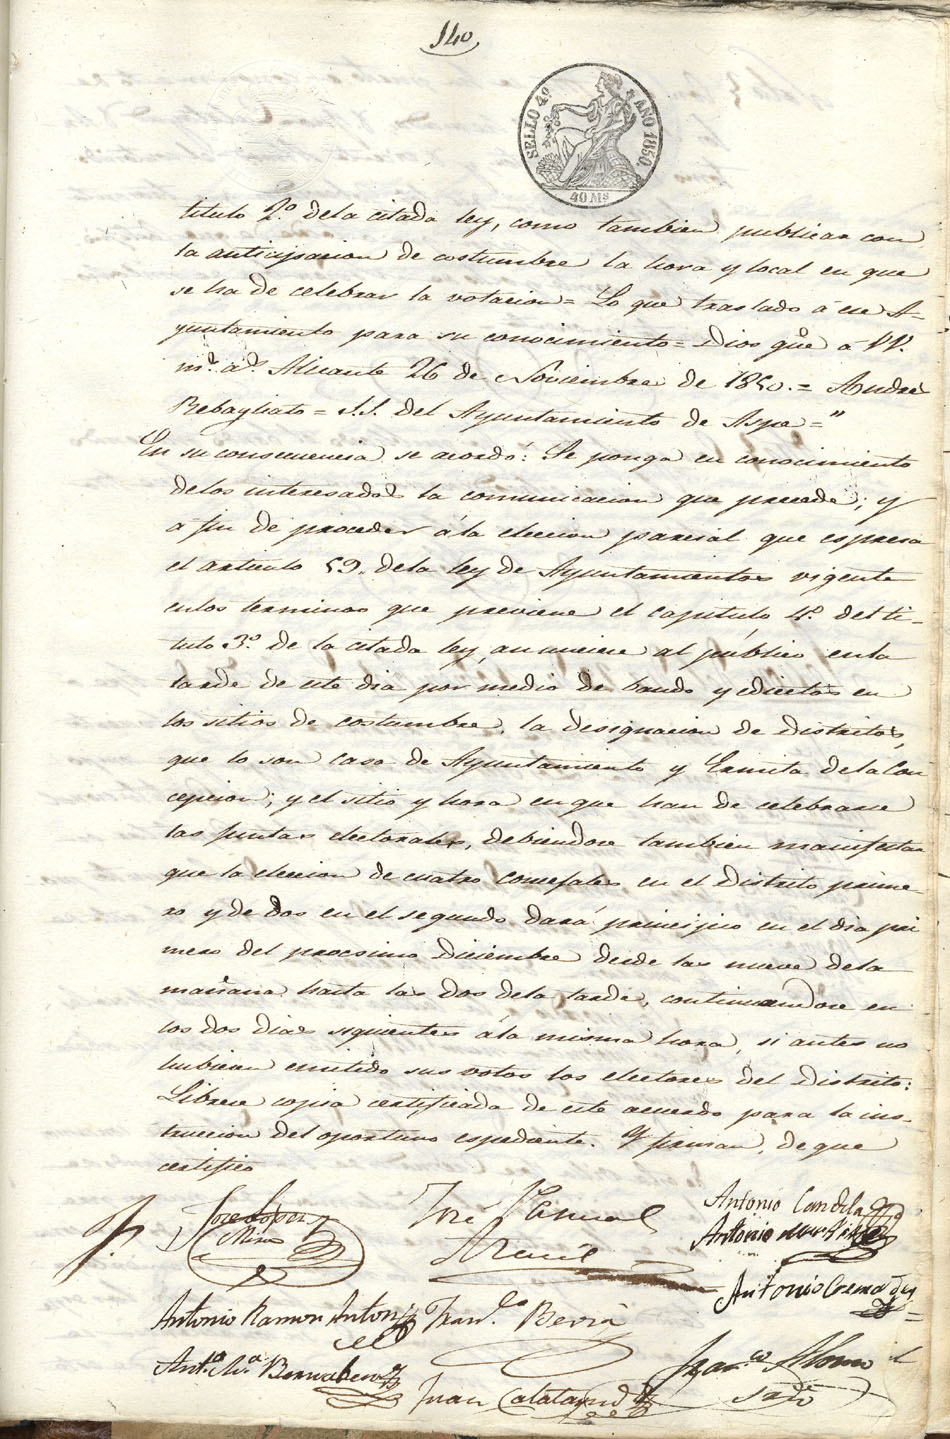 140
SELLO 4º AÑO 1850.
40 Ms
titulo 2º dela citada ley, como tambien publicar con
la anticipacion de costumbre la hora y local en que
se ha de celebrar la votacion = Lo que traslado á ese A-
yuntamiento para su conocimiento = Dios gue á VV.
ms. as. Alicante 26 de Noviembre de 1850. = Andres
Rebagliato = S.S. del Ayuntamiento de Aspe="
En su consecuencia se acordó: Se ponga en conocimiento
delos interesados la comunicacion que precede; y
a fin de proceder á la eleccion parcial que espresa
el articulo 59. dela ley de Ayuntamientos vigente
enlos terminos que previene el capitulo 4º. del ti-
tulo 3º. de la citada ley, anunciese al publico enla
tarde de este dia por medio de bando y edictos en
los sitios de costumbre, la designacion de distritos,
que lo son casa de Ayuntamiento y Ermita dela Con
cepcion; y el sitio y hora en que han de celebrarse
las juntas electorales, debiendose tambien manifestar
que la eleccion de cuatro Concejales en el distrito prime-
ro y de dos en el segundo dará principio en el dia pri
mero del procsimo Diciembre desde las nueve dela
mañana hasta las dos dela tarde, continuandose en
los dos dias siguientes á la misma hora, si antes no
hubieran emitido sus votos los electores del distrito:
Librese copia certificada de este acuerdo para la ins-
truccion del oportuno espediente. Y firman, de que
certifico
José López
Mira
José Pascual
Antonio Candela
Antonio
Antonio Cremades
Antonio Ramon Anton
Franco. Beviá
Anto. Ma. Bernabeu
Juan Calatayud
Franco Alonso
Srio